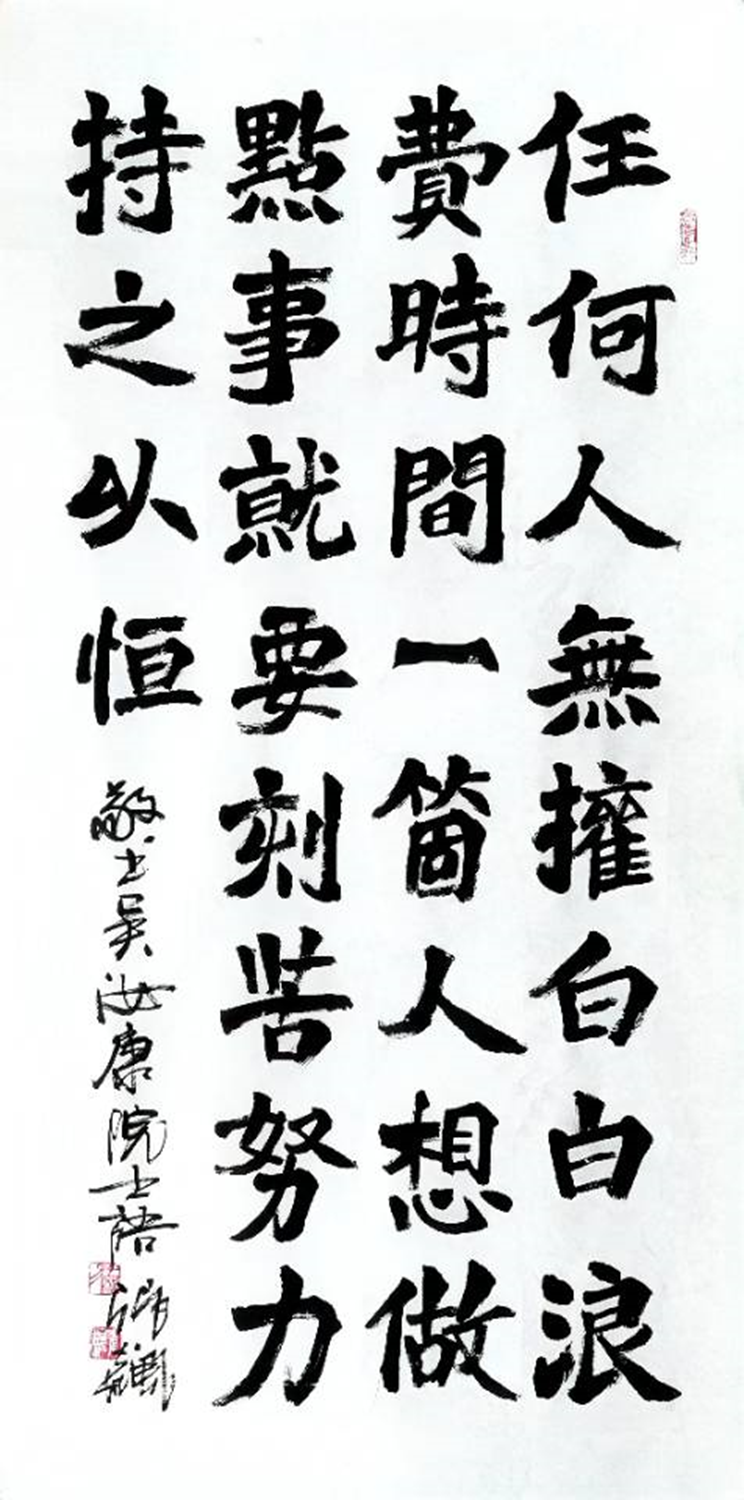 任何人無權白白浪
費時間一箇人想做
點事就要刻苦努力
持之以恒
敬书吴汝康院士語